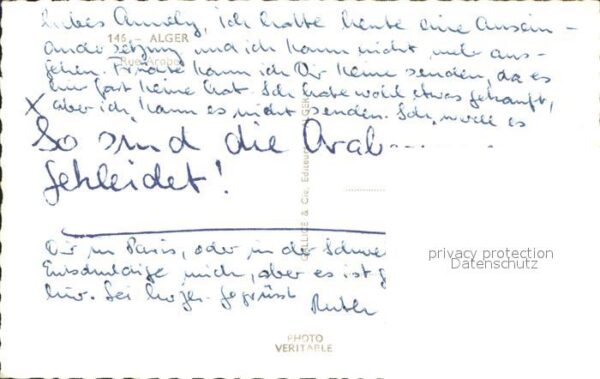 Liebes Annely, Ich hatte heute eine Ausein-
andersetzung und ich kann nicht mehr aus-
gehen. Früchte kann ich Dir keine senden, da es
hier fast keine hat. Ich habe wohl etwas gekauft,
aber ich kann es nicht senden. Ich werde es
145 - ALGER
Rue Arabe
X
So sind die Arab........
gekleidet!
COLLIGE & Cie, Editeurs ALGER
Dir in Paris, oder in der Schwe
Entschuldige mich, aber es ist g
hier. Sei herzl. gegrüsst Ruth
privacy protection
Datenschutz
PHOTO
VERITABLE